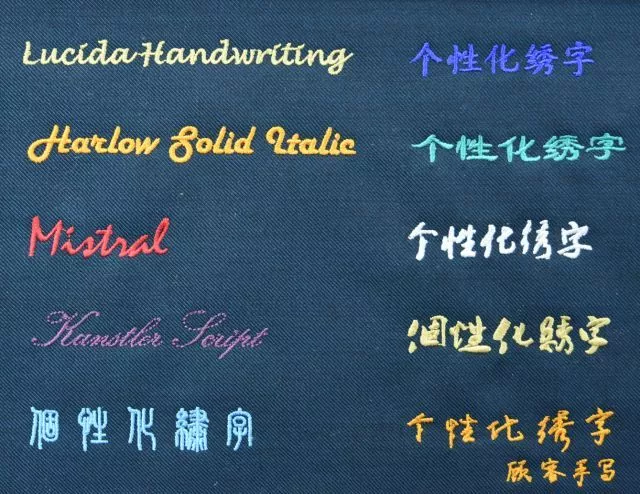 Lucida Handwriting
个性化绣字
Harlow Solid Italic
个性化绣字
Mistral
个性化绣字
Kunstler Script
個性化绣字
個性化繡字
个性化绣字
顾客手写